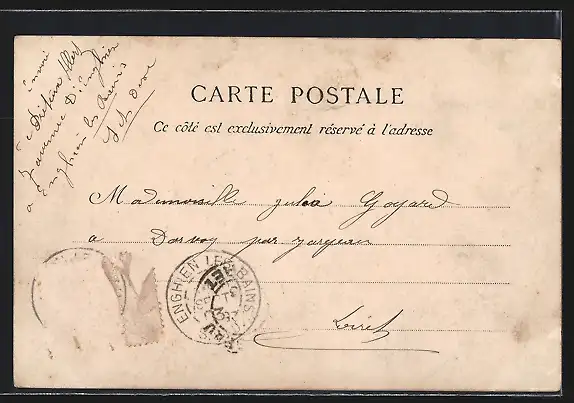 envoi
Albert
7 avenue D'Enghien
a Enghien les Bains
S et Oise
CARTE POSTALE
Ce côté est exclusivement réservé à l'adresse
Mademoiselle Julia Goyard
a Darvoy par Jargeau
Loiret
ENGHIEN LES BAINS